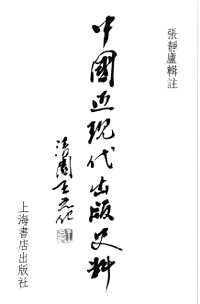 張靜廬輯註
中國近現代出版史料
上海書店出版社